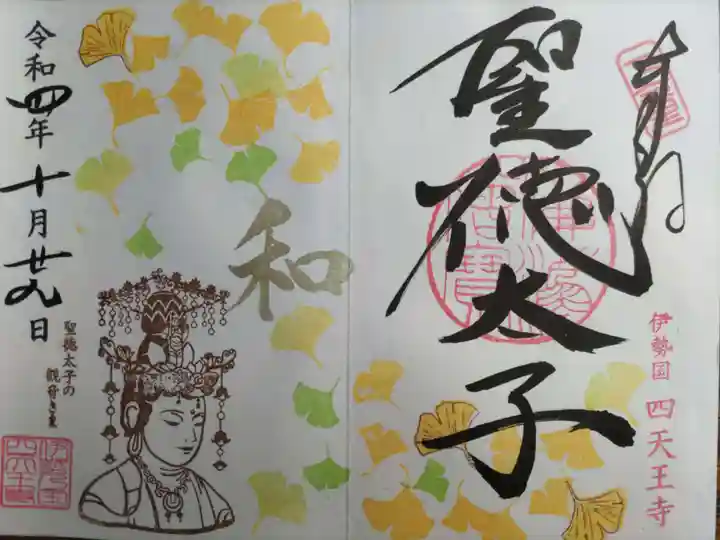 奉拝
聖徳太子
伊勢国 四天王寺
和
聖徳太子の
観音さま
令和四年十月廿九日